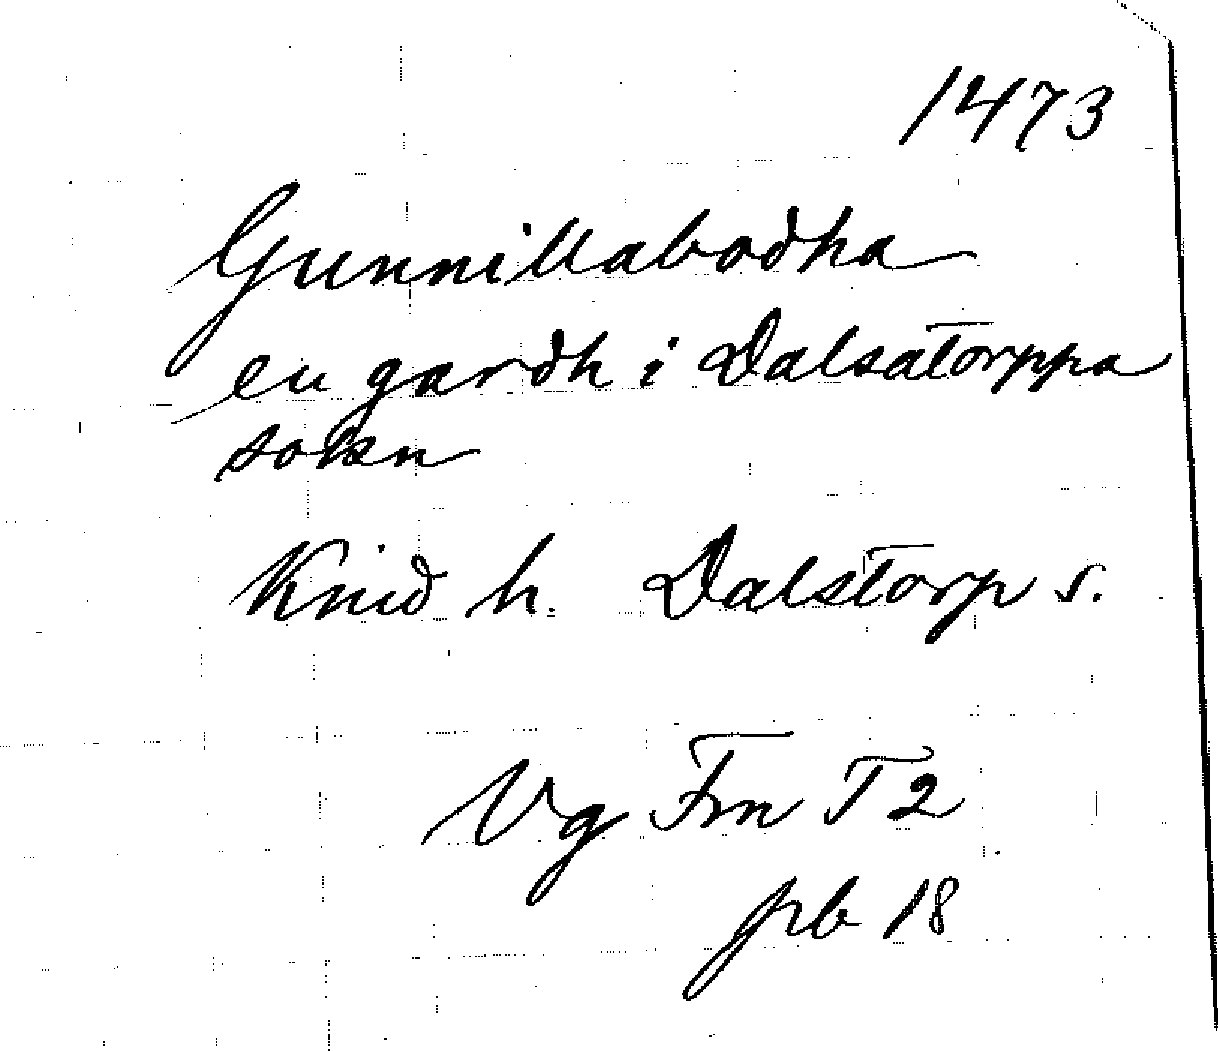 1473
Gunnillabodha
en gardh i Dalsatorppa
sokn
Knið h. Dalstorp s.
Vg Fm T 2
pb 18